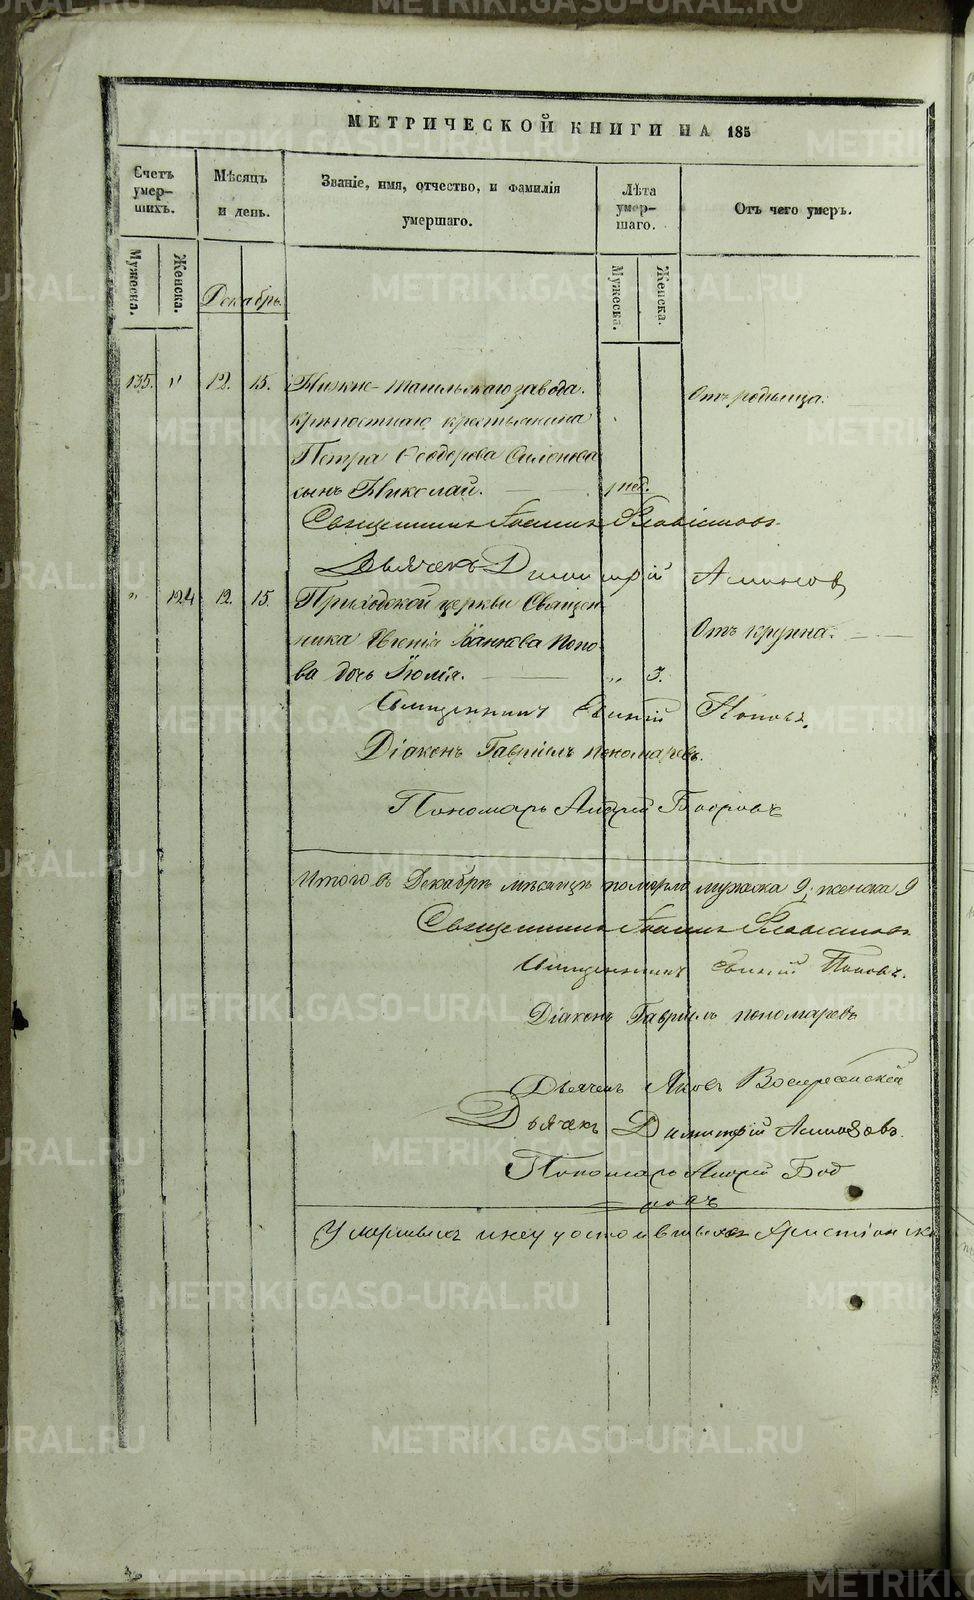 МЕТРИЧЕСКОЙ КНИГИ НА 185
Счетъ умер-шихъ.
Мѣсяцъ и день.
Званіе, имя, отчество, и фамилія умершаго.
Лѣта умер-шаго.
Отъ чего умеръ.
Мужеска.
Женска.
Декабрь.
Мужеска.
Женска.
135. " 12. 15. Нижне-тагильскаго завода Отъ родимца.
крѣпостнаго крестьянина
Петра Ѳеодорова
сынъ Николай. нед.
Священникъ Іоаннъ Флавіановъ
Дьячекъ Димитрій Аминовъ
" 124 12. 15. Приходской церкви Священ-
ника Евгенія Іоаннова Попо- Отъ крупа.
ва дочь Юлія. " 3.
Священникъ Евгеній Поповъ.
Діаконъ Гавріилъ Пономаревъ.
Пономарь Андрей Бобровъ
Итого въ Декабрѣ мѣсяцѣ померло мужска 9, женска 9
Священникъ Іоаннъ Флавіановъ
Священникъ Евгеній Поповъ.
Діаконъ Гавріилъ Пономаревъ
Дьячекъ Яковъ Воскресенскій
Дьячекъ Димитрій
Пономарь Андрей Боб
ровъ
Умершихъ и неудостоившихся Христіанска
METRIKI.GASO-URAL.RU